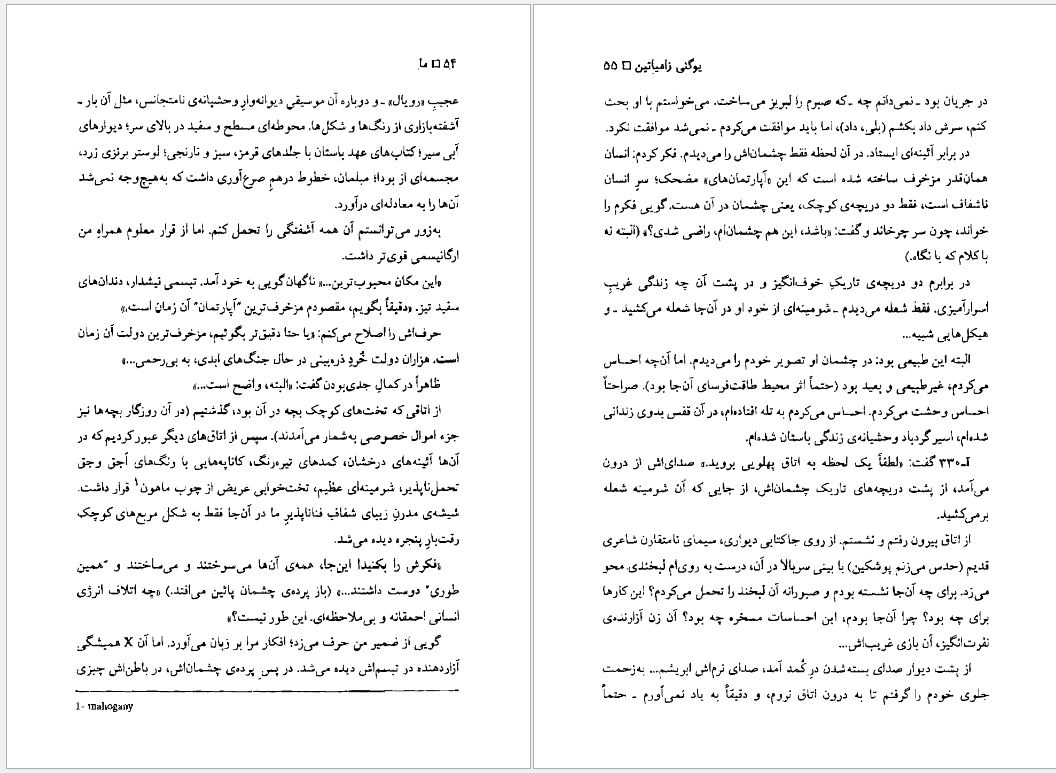 ۵۴ □ ما
عجیبِ «رویال» ـ و دوباره آن موسیقی دیوانه‌وارِ وحشیانه‌ی نامتجانس، مثل آن بار ـ
آشفته‌بازاری از رنگ‌ها و شکل‌ها. محوطه‌ای مسطح و سفید در بالای سر؛ دیوارهای
آبی سیر؛ کتاب‌های عهد باستان با جلدهای قرمز، سبز و نارنجی؛ لوستر برنزی زرد،
مجسمه‌ای از بودا؛ مبلمان، خطوط درهمِ صرع‌آوری داشت که به‌هیچ‌وجه نمی‌شد
آن‌ها را به معادله‌ای درآورد.
به‌زور می‌توانستم آن همه آشفتگی را تحمل کنم. اما از قرار معلوم همراهِ من
ارگانیسمی قوی‌تر داشت.
«این مکان محبوب‌ترین...» ناگهان گویی به خود آمد. تبسمی نیشدار، دندان‌های
سفید تیز. «دقیقاً بگویم، مقصودم مزخرف‌ترین "آپارتمان" آن زمان است.»
حرف‌اش را اصلاح می‌کنم: «یا حتا دقیق‌تر بگوئیم، مزخرف‌ترین دولت آن زمان
است. هزاران دولت خُردِ ذره‌بینی در حال جنگ‌های ابدی، به بی‌رحمی...»
ظاهراً در کمالِ جدی‌بودن گفت: «البته، واضح است...»
از اتاقی که تخت‌های کوچک بچه در آن بود، گذشتیم (در آن روزگار بچه‌ها نیز
جزء اموال خصوصی به‌شمار می‌آمدند). سپس از اتاق‌های دیگر عبور کردیم که در
آن‌ها آئینه‌های درخشان، کمدهای تیره‌رنگ، کاناپه‌هایی با رنگ‌های آجق وجق
تحمل‌ناپذیر، شومینه‌ای عظیم، تخت‌خوابی عریض از چوب ماهون۱ قرار داشت.
شیشه‌ی مدرنِ زیبای شفافِ فناناپذیرِ ما در آن‌جا فقط به شکل مربع‌های کوچک
رقت‌بارِ پنجره دیده می‌شد.
«فکرش را بکنید! این‌جا، همه‌ی آن‌ها می‌سوختند و می‌ساختند و "همین
طوری" دوست داشتند...» (باز پرده‌ی چشمان پائین می‌افتد.) «چه اتلاف انرژی
انسانی احمقانه و بی‌ملاحظه‌ای. این طور نیست؟»
گویی از ضمیر من حرف می‌زد؛ افکار مرا بر زبان می‌آورد. اما آن X همیشگی
آزاردهنده در تبسم‌اش دیده می‌شد. در پسِ پرده‌ی چشمان‌اش، در باطن‌اش چیزی
1- mahogany
یوگنی زامیاتین □ ۵۵
در جریان بود ـ نمی‌دانم چه ـ که صبرم را لبریز می‌ساخت. می‌خواستم با او بحث
کنم، سرش داد بکشم (بلی، داد)، اما باید موافقت می‌کردم ـ نمی‌شد موافقت نکرد.
در برابر آئینه‌ای ایستاد. در آن لحظه فقط چشمان‌اش را می‌دیدم. فکر کردم: انسان
همان‌قدر مزخرف ساخته شده است که این «آپارتمان‌های» مضحک؛ سرِ انسان
ناشفاف است، فقط دو دریچه‌ی کوچک، یعنی چشمان در آن هست. گویی فکرم را
خواند، چون سر چرخاند و گفت: «باشد، این هم چشمان‌ام، راضی شدی؟» (البته نه
با کلام که با نگاه.)
در برابرم دو دریچه‌ی تاریکِ خوف‌انگیز و در پشت آن چه زندگی غریبِ
اسرارآمیزی. فقط شعله می‌دیدم ـ شومینه‌ای از خود او در آن‌جا شعله می‌کشید ـ و
هیکل‌هایی شبیه...
البته این طبیعی بود: در چشمان او تصویر خودم را می‌دیدم. اما آن‌چه احساس
می‌کردم، غیرطبیعی و بعید بود (حتماً اثر محیط طاقت‌فرسای آن‌جا بود). صراحتاً
احساس وحشت می‌کردم. احساس می‌کردم به تله افتاده‌ام، در آن قفس بدوی زندانی
شده‌ام، اسیر گردبادِ وحشیانه‌ی زندگی باستان شده‌ام.
آ-۳۳۰ گفت: «لطفاً یک لحظه به اتاق پهلویی بروید.» صدای‌اش از درون
می‌آمد، از پشت دریچه‌های تاریک چشمان‌اش، از جایی که آن شومینه شعله
برمی‌کشید.
از اتاق بیرون رفتم و نشستم. از روی جاکتابی دیواری، سیمای نامتقارن شاعری
قدیم (حدس می‌زنم پوشکین) با بینی سربالا در آن، درست به روی‌ام لبخندی محو
می‌زد. برای چه آن‌جا نشسته بودم و صبورانه آن لبخند را تحمل می‌کردم؟ این کارها
برای چه بود؟ چرا آن‌جا بودم، این احساسات مسخره چه بود؟ آن زن آزارنده‌ی
نفرت‌انگیز، آن بازی غریب‌اش...
از پشت دیوار صدای بسته‌شدن درِ کُمد آمد، صدای نرم‌اش ابریشم... به‌زحمت
جلوی خودم را گرفتم تا به درون اتاق نروم، و دقیقاً به یاد نمی‌آورم ـ حتماً